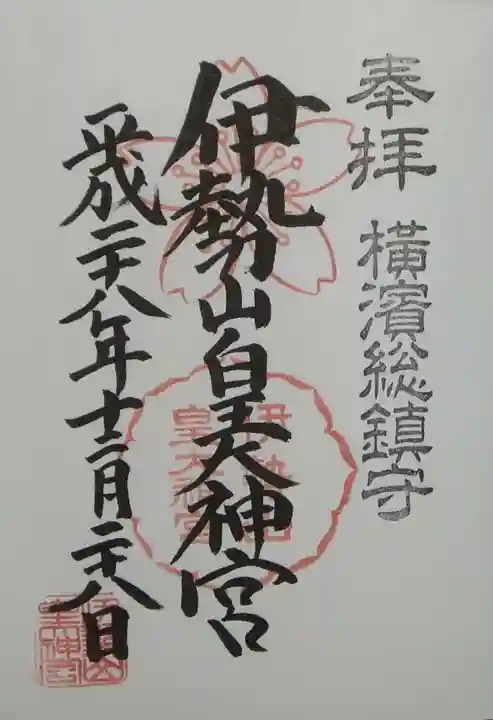 奉拝 横濱総鎮守
伊勢山皇大神宮
平成二十八年十二月二十八日
伊勢山
皇大神宮